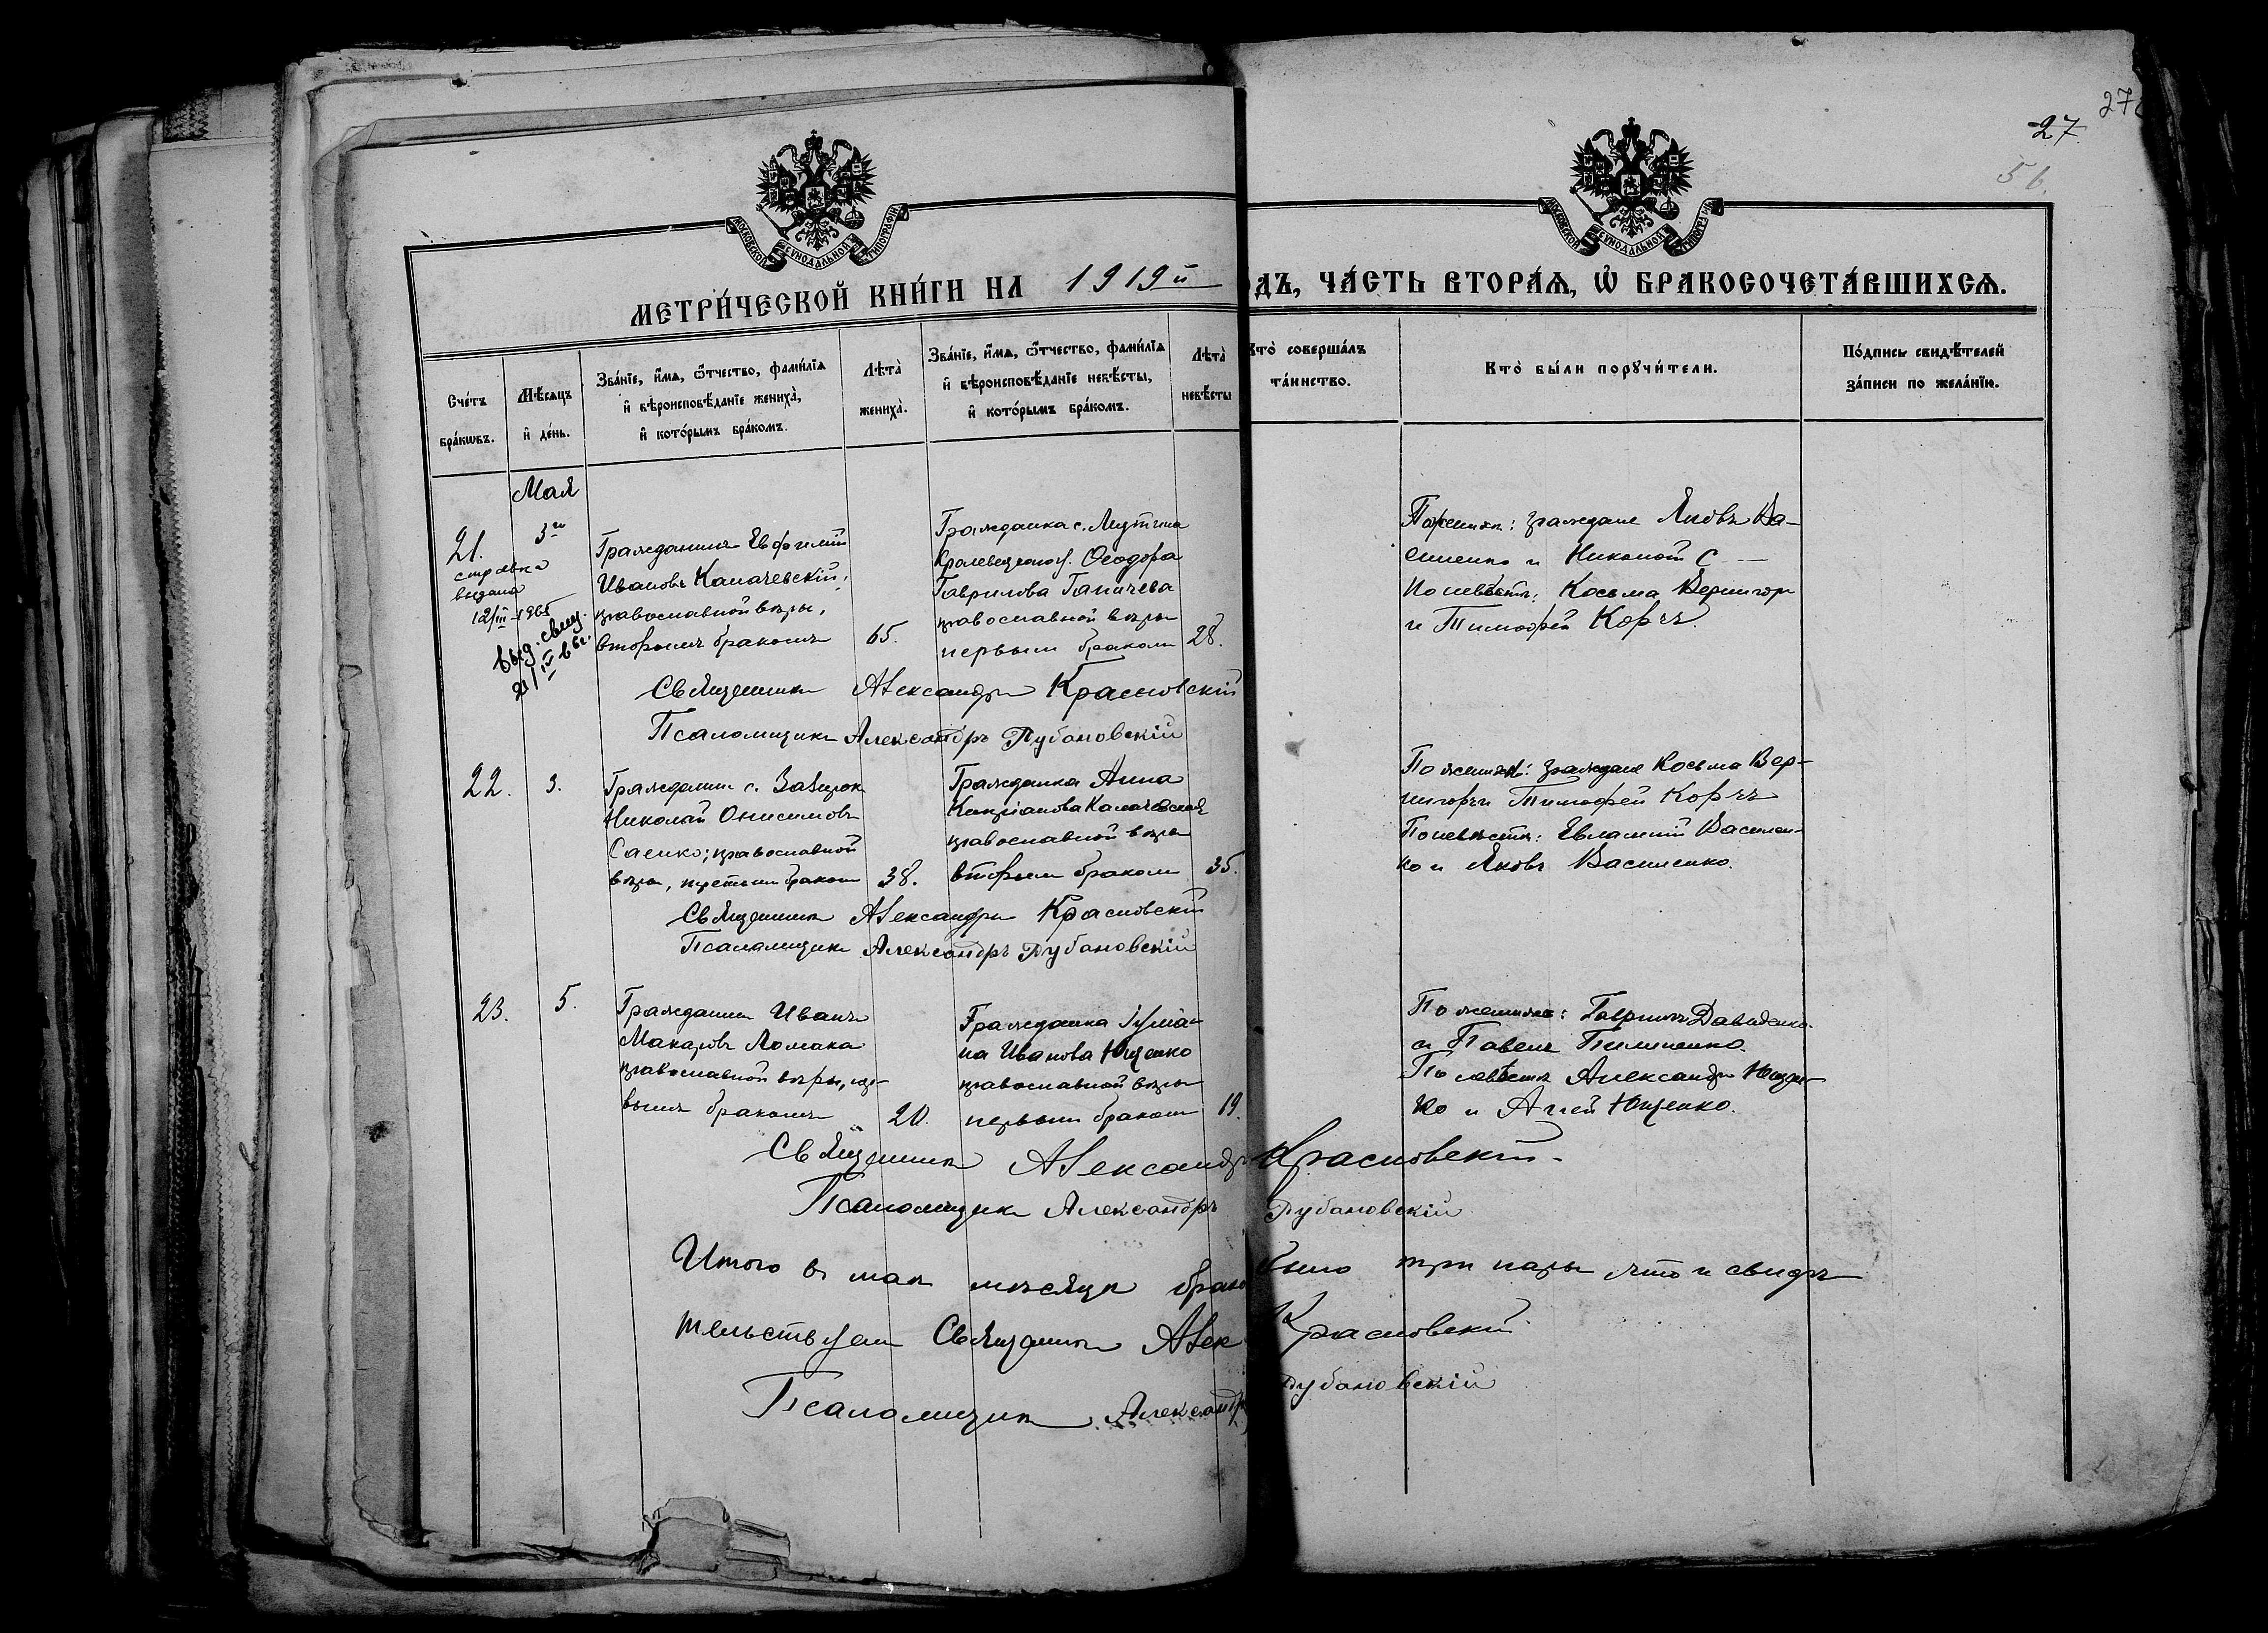 27
27.
56.
МОСКОВСКОЙ СѴНОДАЛЬНОЙ ТИПОГРАФІИ
МОСКОВСКОЙ СѴНОДАЛЬНОЙ ТИПОГРАФІИ
МЕТРИ́ЧЕСКОЙ КНИ́ГИ НА 1919й
ДЪ, ЧА́СТЬ ВТОРА́Ѧ, Ѡ҆ БРАКОСОЧЕТА́ВШИХСѦ.
Сче́тъ бра́кѡвъ.
Мѣ́сѧцъ и҆ де́нь.
Зва́нїе, и҆́мѧ, ѻ҆́тчество, фами́лїѧ и҆ вѣроисповѣ́данїе жениха̀, и҆ кото́рымъ бра́комъ.
Лѣта̀ жениха̀.
Зва́нїе, и҆́мѧ, ѻ҆́тчество, фами́лїѧ и҆ вѣроисповѣ́данїе невѣ́сты, и҆ кото́рымъ бра́комъ.
Лѣта̀ невѣ́сты
кто̀ соверша́лъ та́инство.
Кто̀ бы́ли порꙋчи́тели.
По́дпись свидѣ́телей за́писи по жела́нїю.
Мая
21.
справка
выдана
12/III-1965
выд. свид.
21/IV 66г.
3го
Гражданинъ Евфимій
Ивановъ Калачевскій,
православной вѣры,
вторымъ бракомъ
65.
Гражданка с. Лутина
Кролевецкаго у. Ѳеодора
Гаврилова
православной вѣры
первымъ бракомъ
28.
По женихѣ: граждане Яковъ Ва-
силенко и Никонъ С
По невѣстѣ: Косьма Вернигора
и Тимофей Коржъ.
Священникъ Александръ Красновскій
Псаломщикъ Александръ Рубановскій
22.
3.
Гражданинъ с.
Николай Онисимовъ
Саенко; православной
вѣры, третьимъ бракомъ
38.
Гражданка Анна
Кипріанова Калачевская
православной вѣры
вторымъ бракомъ
35.
По женихѣ: граждане Косьма Вер-
нигора и Тимофей Коржъ
По невѣстѣ: Евлампій Василен-
ко и Яковъ Василенко.
Священникъ Александръ Красновскій
Псаломщикъ Александръ Рубановскій
23.
5.
Гражданинъ Иванъ
Макаровъ Ломака
православной вѣры, пер-
вымъ бракомъ
20.
Гражданка Іуліа-
на Иванова Ющенко
православной вѣры
первымъ бракомъ
19.
По женихѣ: Гавріилъ Давиденко
и Павелъ Пилипенко.
По невѣстѣ Александръ Ющен-
ко и Ющенко.
Священникъ Александръ Красновскій.
Псаломщикъ Александръ Рубановскій
Итого въ маѣ мѣсяцѣ брако было три пары, что и свидѣ-
тельствуемъ Священникъ Алек Красновскій
Псаломщикъ Александръ Рубановскій